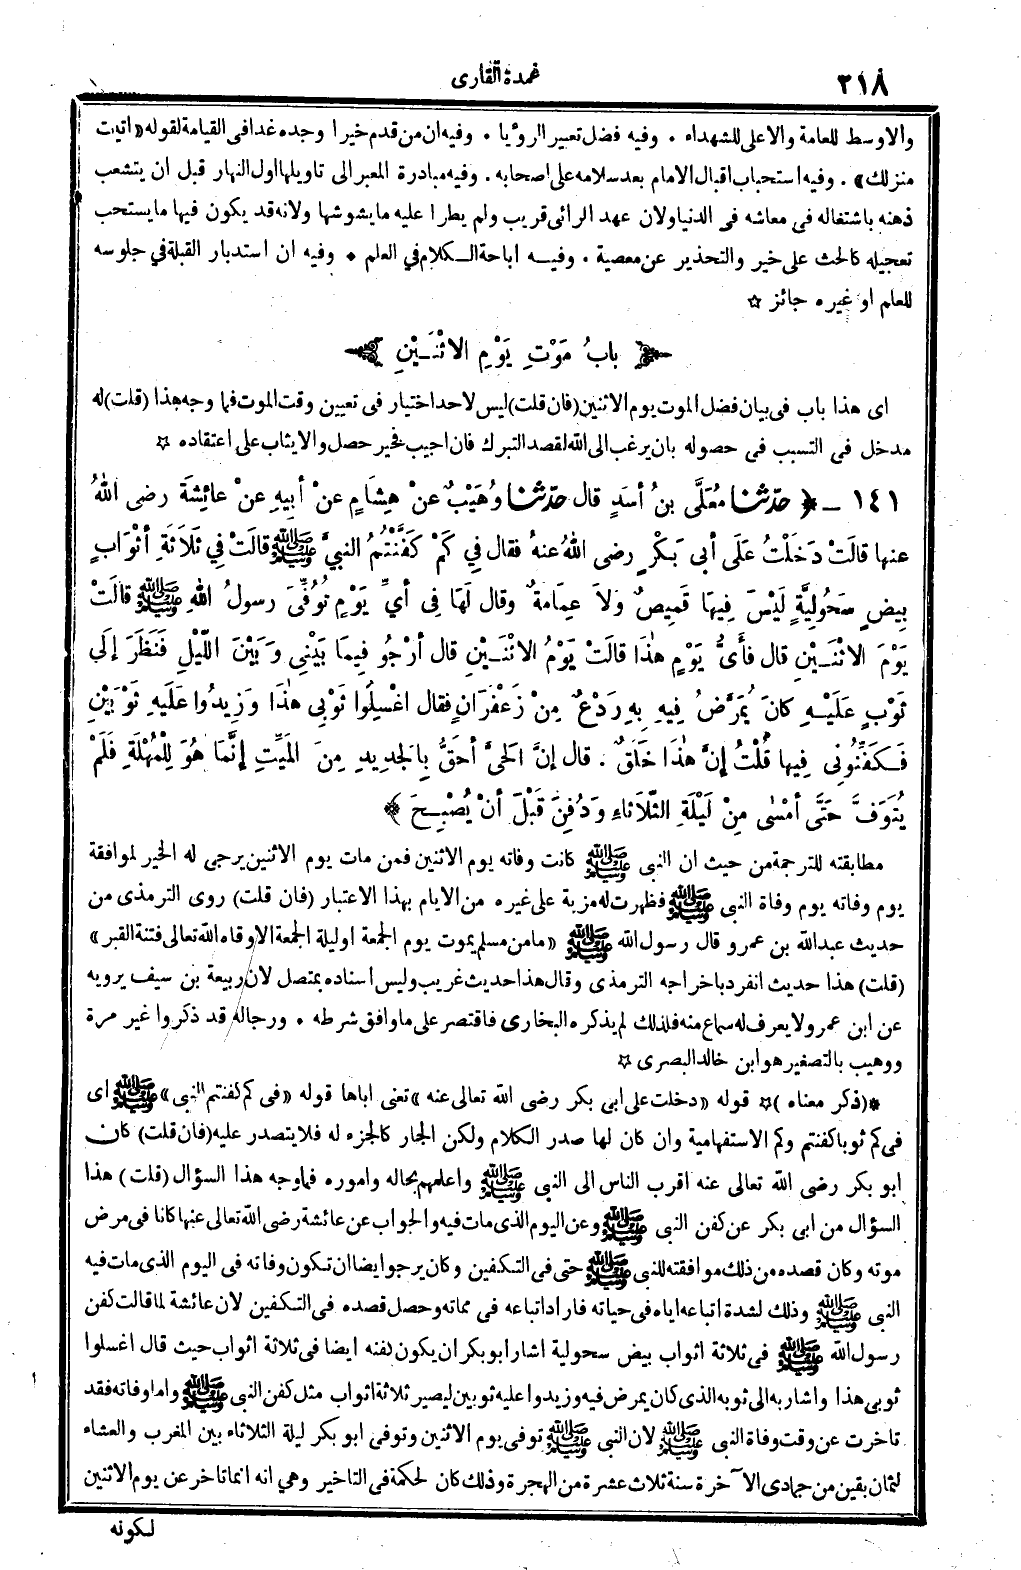 عمدة القارى ٢١٨
والاوسط للعامة والاعلى للشهداء . وفيه فضل تعبير الرؤيا . وفيه ان من قدم خيرا وجده غدا فى القيامة لقوله «اتيت
منزلك» . وفيه استحباب اقبال الامام بعد سلامه على اصحابه . وفيه مبادرة المعبر الى تاويلها اول النهار قبل ان يتشعب
ذهنه باشتغاله فى معاشه فى الدنيا ولان عهد الرائى قريب ولم يطرا عليه ما يشوشها ولانه قد يكون فيها ما يستحب
تعجيله كالحث على خير والتحذير عن معصية . وفيـه اباحة الـكلام فى العلم * وفيه ان استدبار القبلة في جلوسه
للعلم او غيره جائز ☆
بابُ مَوْتِ يَوْمِ الاثْنَـيْنِ
اى هذا باب فى بيان فضل الموت يوم الاثنين (فان قلت) ليس لاحد اختيار فى تعيين وقت الموت فما وجه هذا (قلت) له
مدخل فى التسبب فى حصوله بان يرغب الى الله لقصد التبرك فان اجيب فخير حصل والا يثاب على اعتقاده ☆
١٤١ ـ ﴿ حدّثنا مُعَلَّى بنُ أسَدٍ قال حدّثنا وُهَيْبٌ عنْ هِشَامٍ عنْ أبيهِ عنْ عائِشَةَ رضى اللهُ
عنها قالَتْ دَخَلْتُ عَلَى أبى بَكْرٍ رضى اللهُ عنهُ فقال فِي كَمْ كَفَّنْتُمُ النبيَّ ﷺ قالَتْ فِي ثَلَاثَةِ أثْوَابٍ
بِيضٍ سَحُولِيَّةٍ لَيْسَ فِيهَا قَمِيصٌ وَلاَ عِمَامَةٌ وقال لَهَا فِى أيِّ يَوْمٍ تُوُفِّىَ رسولُ اللهِ ﷺ قالَتْ
يَوْمَ الاثْنَـيْنِ قال فأَىُّ يَوْمٍ هذَا قالَتْ يَوْمُ الاثْنَـيْنِ قال أرْجُو فِيمَا بَيْنِى وَبَيْنَ اللَّيْلِ فَنَظَرَ إلَى
ثَوْبٍ عَلَيْـهِ كانَ يُمَرَّضُ فِيهِ بِهِ رَدْعٌ مِنْ زَعْفَرَانٍ فقال اغْسِلُوا ثَوْبِى هذَا وَزِيدُوا عَلَيهِ ثَوْبَيْنِ
فَـكَفِّنُونِى فِيها قُلْتُ إنَّ هٰذَا خَلَقٌ . قال إنَّ الحَىَّ أحَقُّ بِالجَدِيدِ مِنَ المَيِّتِ إنَّمَا هُوَ لِلْمُهْلَةِ فَلَمْ
يُتَوَفَّ حَتَّى أمْسٰى مِنْ لَيْلَةِ الثّلَاثاءِ وَدُفِنَ قَبْلَ أنْ يُصْبِـحَ ﴾
مطابقته للترجمة من حيث ان النبى ﷺ كانت وفاته يوم الاثنين فمن مات يوم الاثنين يرجى له الخير لموافقة
يوم وفاته يوم وفاة النبى ﷺ فظهرت له مزية على غيره من الايام بهذا الاعتبار (فان قلت) روى الترمذى من
حديث عبدالله بن عمرو قال رسول الله ﷺ «ما من مسلم يموت يوم الجمعة او ليلة الجمعة الا وقاه الله تعالى فتنة القبر»
(قلت) هذا حديث انفرد باخراجه الترمذى وقال هذا حديث غريب وليس اسناده بمتصل لان ربيعة بن سيف يرويه
عن ابن عمرو ولا يعرف له سماع منه فلذلك لم يذكره البخارى فاقتصر على ما وافق شرطه . ورجاله قد ذكروا غير مرة
ووهيب بالتصغير هو ابن خالد البصرى ☆
*(ذكر معناه)☆ قوله «دخلت على ابى بكر رضى الله تعالى عنه» تعنى اباها قوله «فى كم كفنتم النبى» ﷺ اى
فى كم ثوبا كفنتم وكم الاستفهامية وان كان لها صدر الكلام ولكن الجار كالجزء له فلا يتصدر عليه (فان قلت) كان
ابو بكر رضى الله تعالى عنه اقرب الناس الى النبى ﷺ واعلمهم بحاله واموره فما وجه هذا السؤال (قلت) هذا
السؤال من ابى بكر عن كفن النبى ﷺ وعن اليوم الذى مات فيه والجواب عن عائشة رضى الله تعالى عنها كانا فى مرض
موته وكان قصده من ذلك موافقته للنبى ﷺ حتى فى التكفين وكان يرجو ايضا ان تكون وفاته فى اليوم الذى مات فيه
النبى ﷺ وذلك لشدة اتباعه اياه فى حياته فاراد اتباعه فى مماته وحصل قصده فى التكفين لان عائشة لما قالت كفن
رسول الله ﷺ فى ثلاثة اثواب بيض سحولية اشار ابو بكر ان يكون كفنه ايضا فى ثلاثة اثواب حيث قال اغسلوا
ثوبى هذا واشار به الى ثوبه الذى كان يمرض فيه وزيدوا عليه ثوبين ليصير ثلاثة اثواب مثل كفن النبى ﷺ واما وفاته فقد
تاخرت عن وقت وفاة النبى ﷺ لان النبى ﷺ توفى يوم الاثنين وتوفى ابو بكر ليلة الثلاثاء بين المغرب والعشاء
لثمان بقين من جمادى الآخرة سنة ثلاث عشرة من الهجرة وذلك كان لحكمة فى التاخير وهي انه انما تاخر عن يوم الاثنين
لـكونه